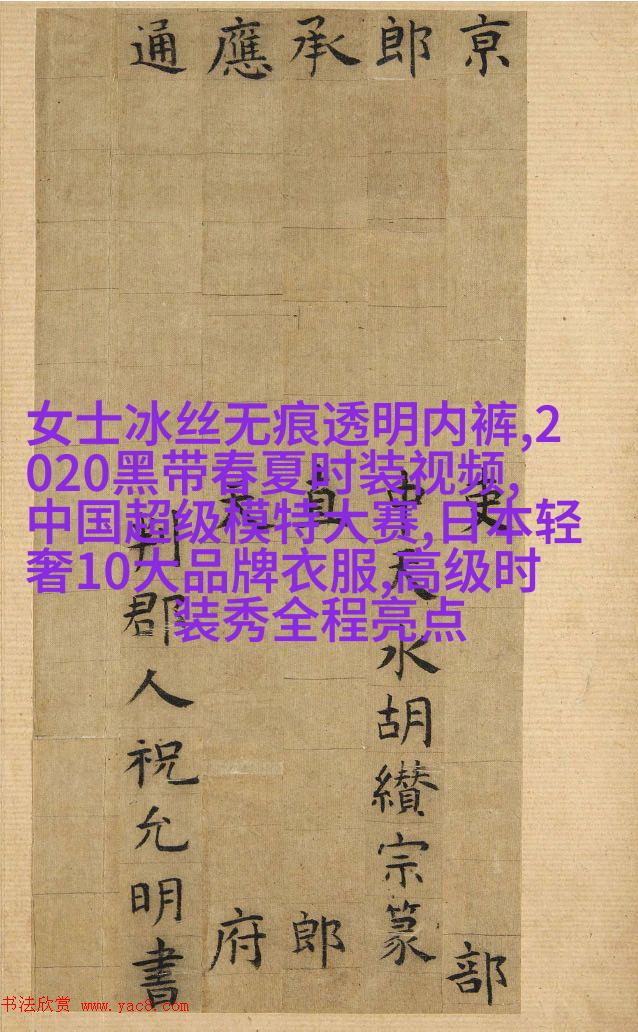 京吏部
郎中天水胡纘宗篆
承直郎
應天府
通判郡人祝允明書
女士冰丝无痕透明内裤,2
020黑带春夏时装视频,
中国超级模特大赛,日本轻
奢10大品牌衣服,高级时
装秀全程亮点
书法欣赏 www.yac8.com